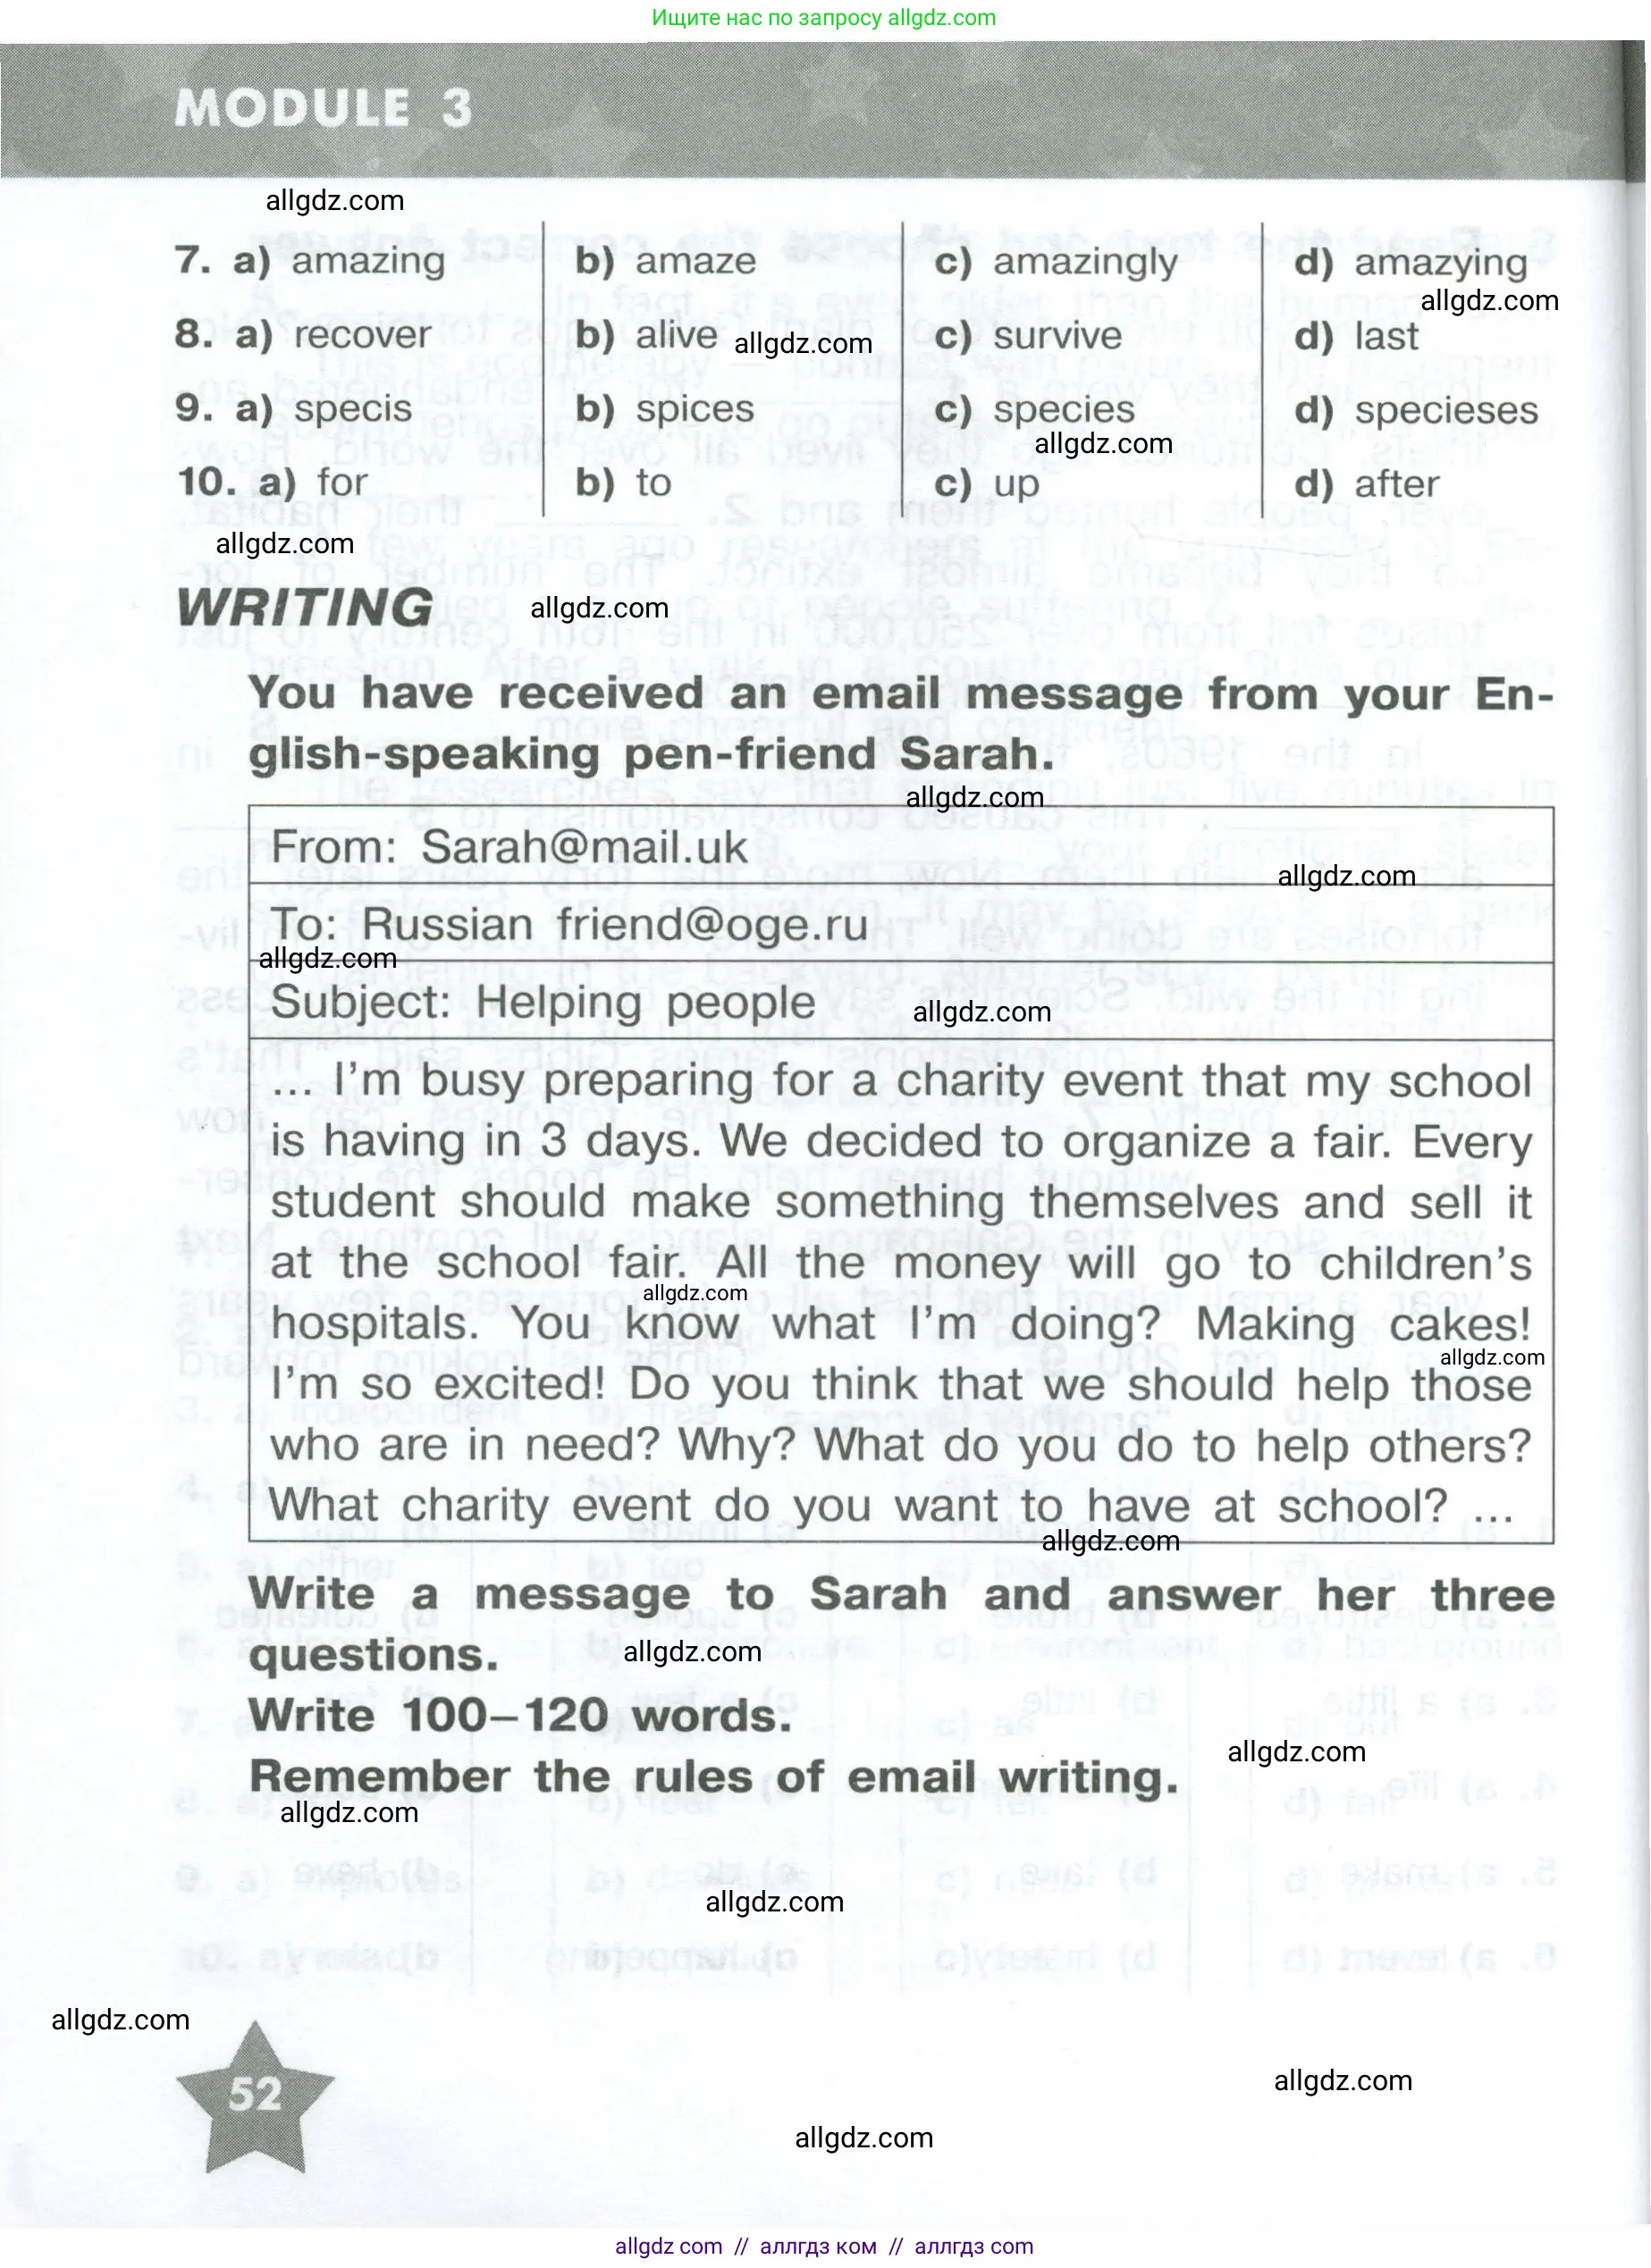 Ищите нас по запросу allgdz.com
MODULE 3
allgdz.com
7. a) amazing b) amaze c) amazingly d) amazying
allgdz.com
8. a) recover b) alive allgdz.com c) survive d) last
9. a) specis b) spices c) species d) specieses
allgdz.com
10. a) for b) to c) up d) after
allgdz.com
WRITING allgdz.com
You have received an email message from your En-
glish-speaking pen-friend Sarah.
allgdz.com
From: Sarah@mail.uk
allgdz.com
To: Russian friend@oge.ru
allgdz.com
Subject: Helping people allgdz.com
... I'm busy preparing for a charity event that my school
is having in 3 days. We decided to organize a fair. Every
student should make something themselves and sell it
at the school fair. All the money will go to children's
allgdz.com
hospitals. You know what I'm doing? Making cakes!
allgdz.com
I'm so excited! Do you think that we should help those
who are in need? Why? What do you do to help others?
What charity event do you want to have at school? ...
allgdz.com
Write a message to Sarah and answer her three
questions. allgdz.com
Write 100–120 words.
allgdz.com
Remember the rules of email writing.
allgdz.com
allgdz.com
allgdz.com
52
allgdz.com
allgdz.com
allgdz com // аллгдз ком // аллгдз com